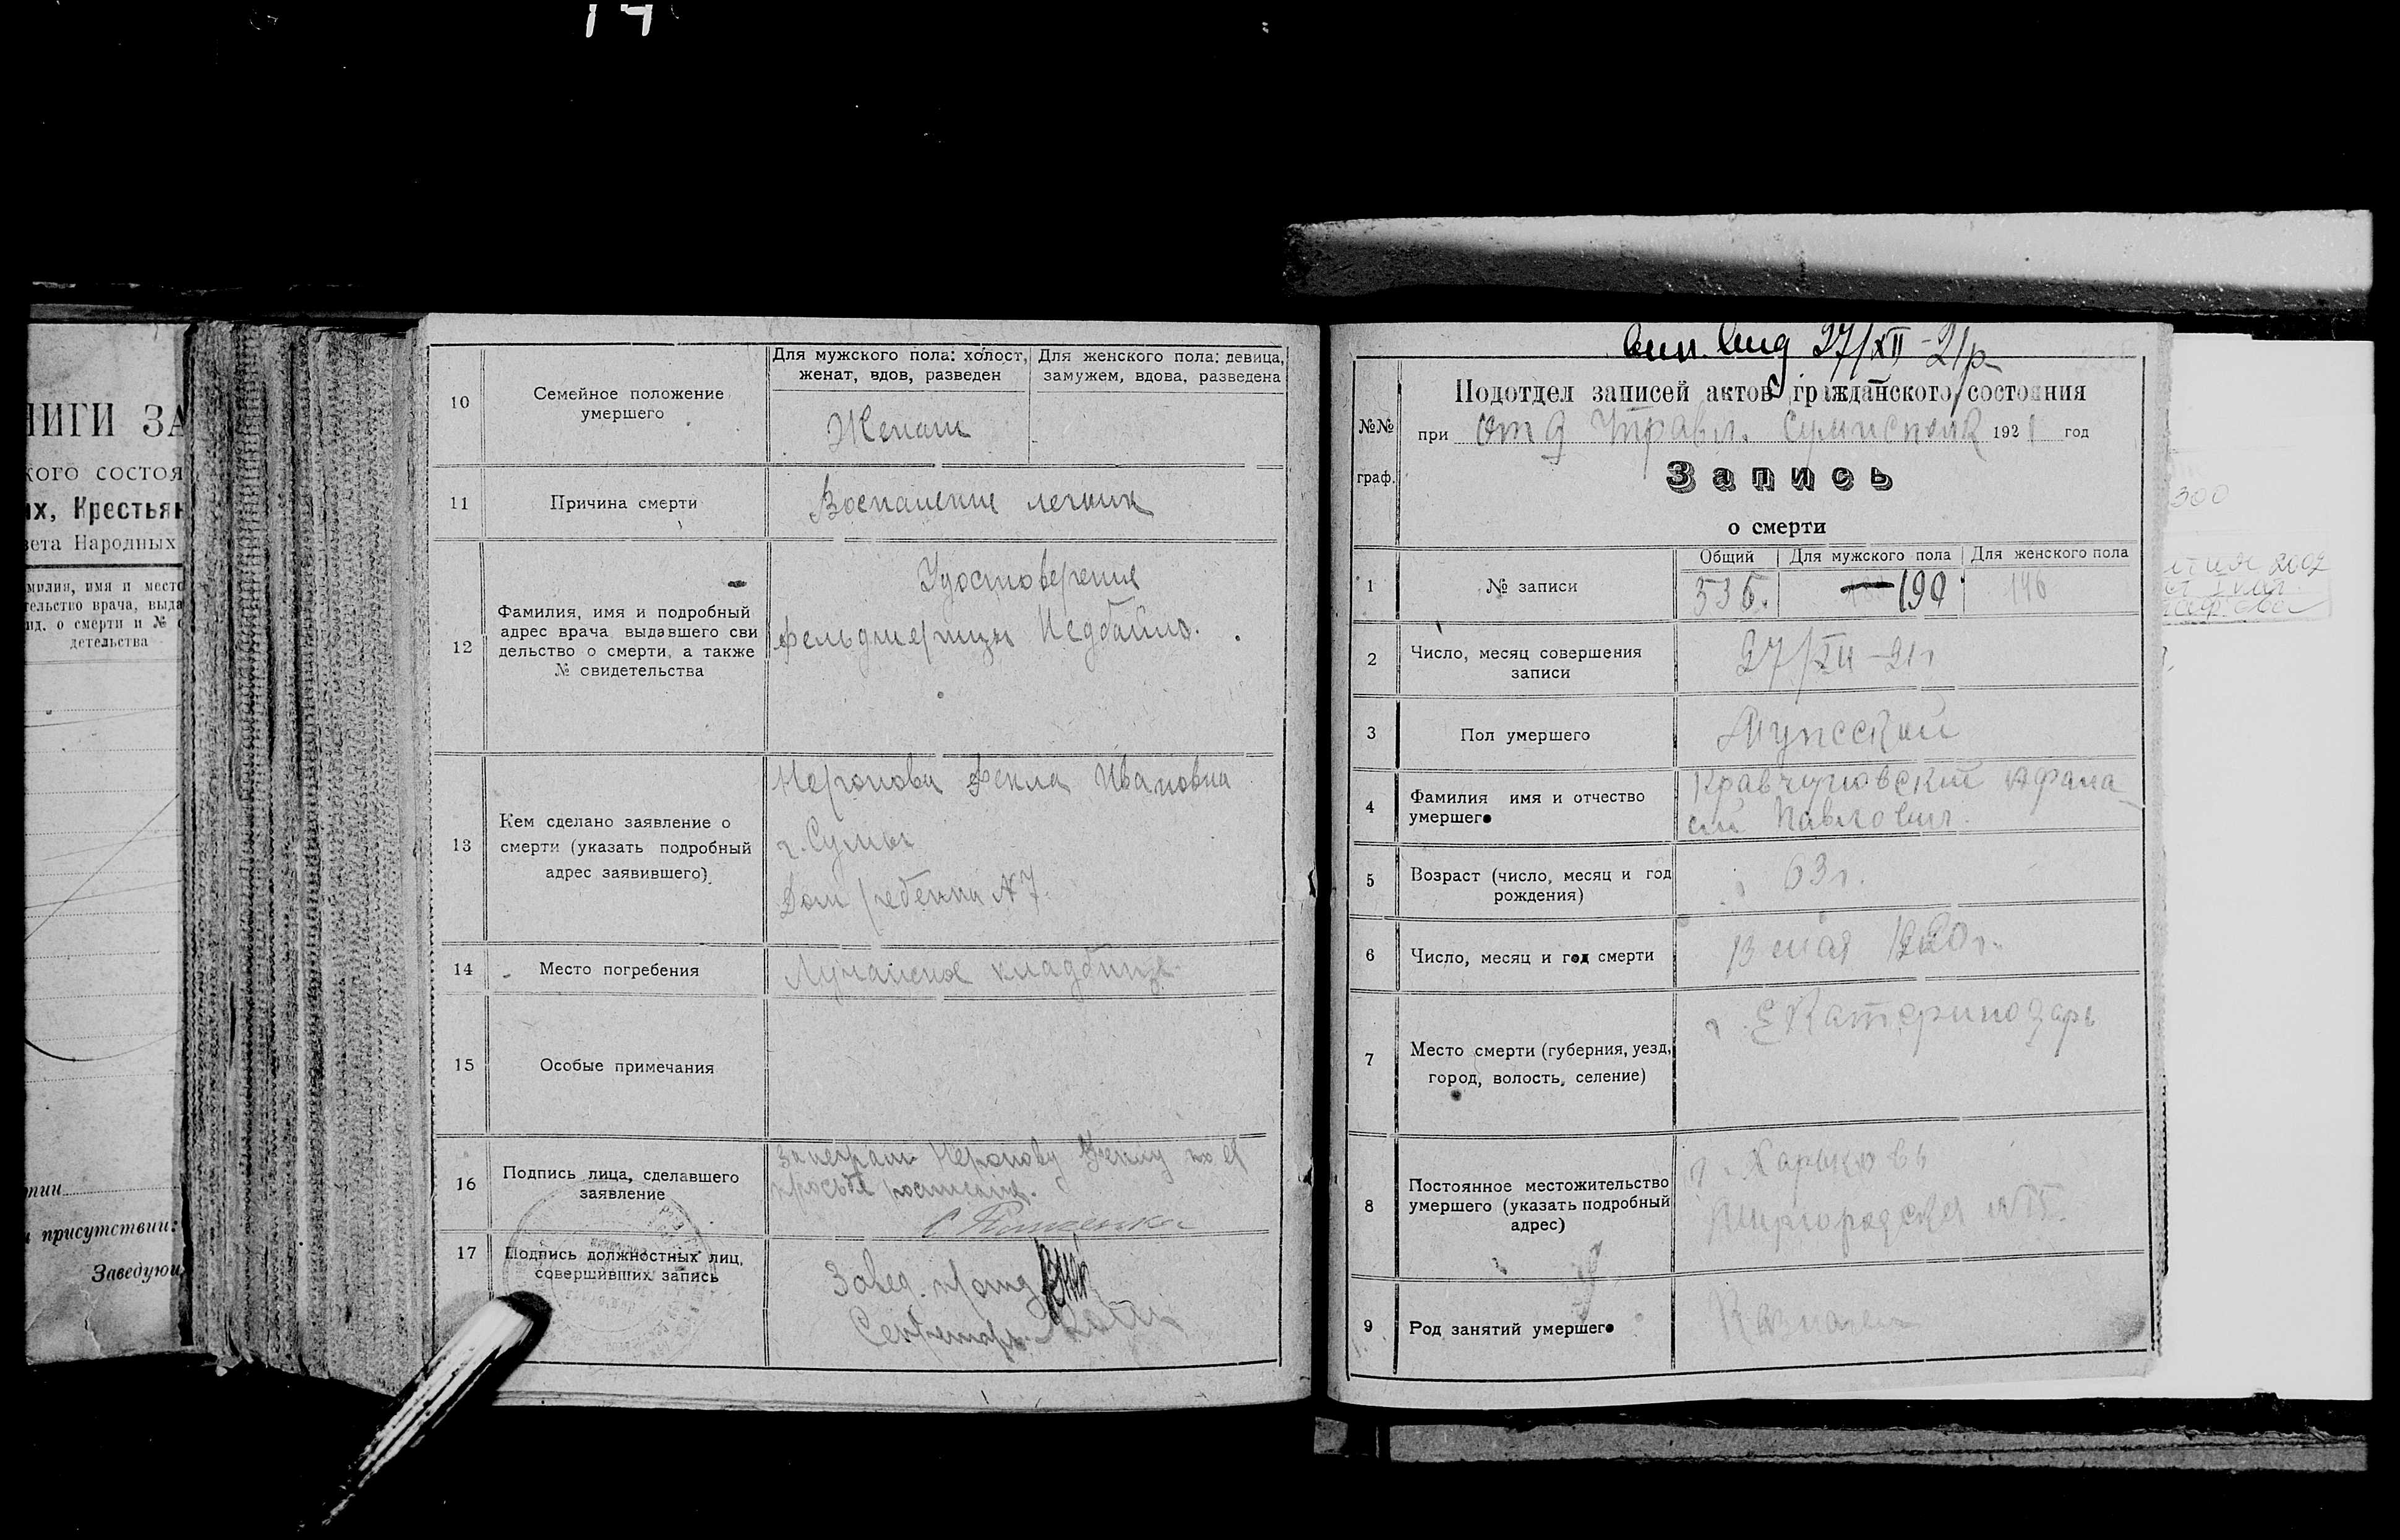 14
НИГИ ЗА
кого состоя
их, Крестьян
вета Народных
милия, имя и место
тельство врача, выда
ид. о смерти и №
детельства
присутствии:
Заведующ
10
Семейное положение
умершего
Для мужского пола: холост,
женат, вдов, разведен
Для женского пола: девица,
замужем, вдова, разведена
Женат
11
Причина смерти
Воспаление легких
12
Фамилия, имя и подробный
адрес врача выдавшего сви
дельство о смерти, а также
№ свидетельства
Удостоверение
фельдшерицы Недбайло.
13
Кем сделано заявление о
смерти (указать подробный
адрес заявившего)
Неронова Фекла Ивановна
г. Сумы
Дом ребенка № 7.
14
Место погребения
кладбище
15
Особые примечания
16
Подпись лица, сделавшего
заявление
Неронову Феклу по ея
просьбе
17
Подпись должностных лиц,
совершивших запись
Завед. п/отд
Секретарь
27/XII-21р
Подотдел записей актов гражданского состояния
№№
граф.
при Отд Управл. 1921 год
Запись
о смерти
1
№ записи
Общий
Для мужского пола
Для женского пола
336.
190
146
2
Число, месяц совершения
записи
27/XII-21г
3
Пол умершего
Мужской
4
Фамилия имя и отчество
умершего
Афана
сий Павлович.
5
Возраст (число, месяц и год
рождения)
63 г.
6
Число, месяц и год смерти
13 мая 1920 г.
7
Место смерти (губерния, уезд,
город, волость, селение)
г. Екатеринодарь
8
Постоянное местожительство
умершего (указать подробный
адрес)
г. Харьковь
Миргородская
9
Род занятий умершего
300
2002